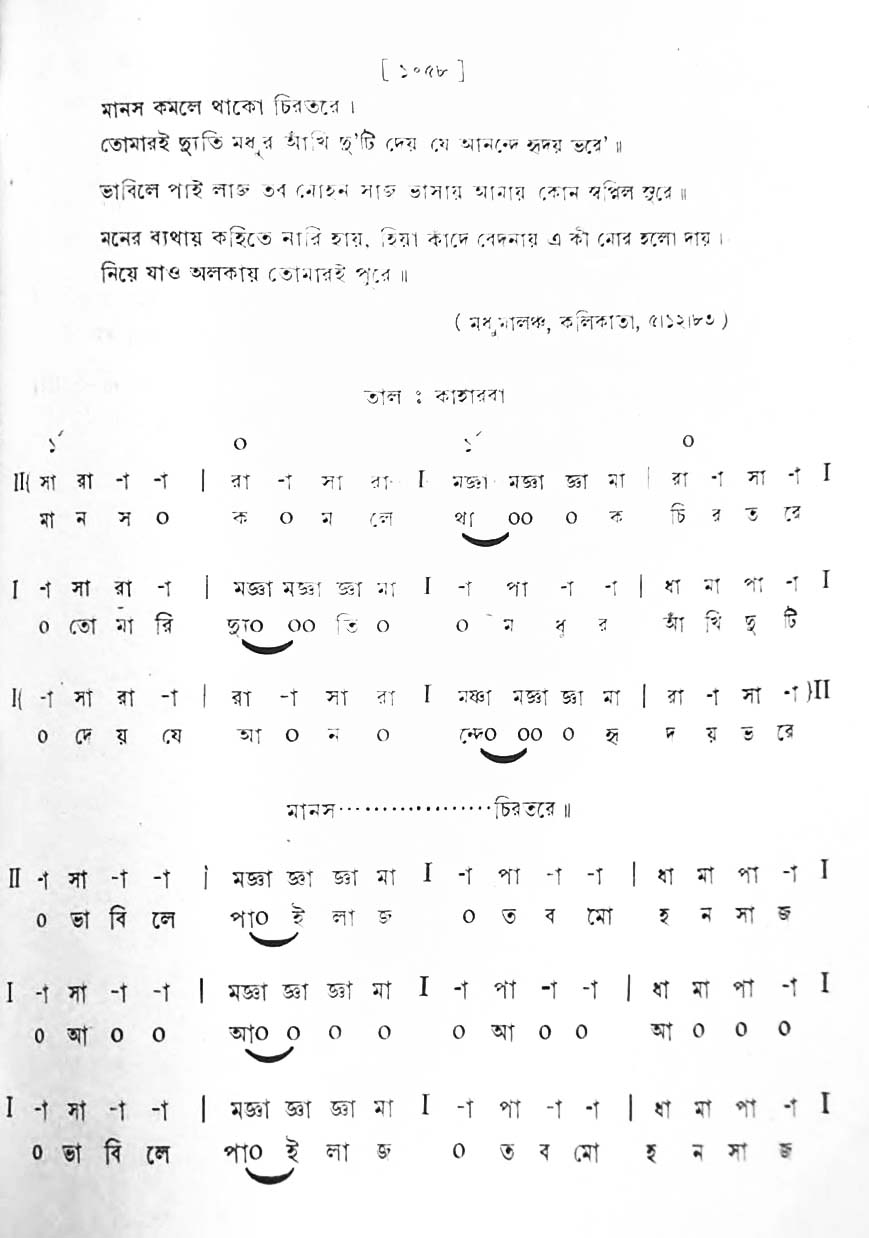 [ ১০৫৮ ]
মানস কমলে থাকো চিরতরে ।
তোমারই দ্যুতি মধুর আঁখি দু'টি দেয় যে আনন্দে হৃদয় ভরে' ॥
ভাবিলে পাই লাজ তব মোহন সাজ ভাসায় আমায় কোন স্বপ্নিল সুরে ॥
মনের ব্যথায় কহিতে নারি হায়, হিয়া কাঁদে বেদনায় এ কী মোর হলো দায় ।
নিয়ে যাও অলকায় তোমারই পুরে ॥
( মধুমালঞ্চ, কলিকাতা, ৫।১২।৮৩ )
তাল ঃ কাহারবা
১´ ০ ১´ ০
II( সা রা -া -া | রা -া সা রা I মজ্ঞা মজ্ঞা জ্ঞা মা | রা -া সা -া I
মা ন স ০ ক ০ ম লে থা ০০ ০ ক চি র ত রে
I -া সা রা -া | মজ্ঞা মজ্ঞা জ্ঞা মা I -া পা -া -া | ধা মা পা -া I
০ তো মা রি দ্যু০ ০০ তি ০ ০ ম ধু র আঁ খি দু টি
I( -া সা রা -া | রা -া সা রা I মজ্ঞা মজ্ঞা জ্ঞা মা | রা -া সা -া )II
০ দে য় যে আ ০ ন ০ ন্দে০ ০০ ০ হৃ দ য় ভ রে
মানস··················চিরতরে ॥
II -া সা -া -া | মজ্ঞা জ্ঞা জ্ঞা মা I -া পা -া -া | ধা মা পা -া I
০ ভা বি লে পা০ ই লা জ ০ ত ব মো হ ন সা জ
I -া সা -া -া | মজ্ঞা জ্ঞা জ্ঞা মা I -া পা -া -া | ধা মা পা -া I
০ আ ০ ০ আ০ ০ ০ ০ ০ আ ০ ০ আ ০ ০ ০
I -া সা -া -া | মজ্ঞা জ্ঞা জ্ঞা মা I -া পা -া -া | ধা মা পা -া I
০ ভা বি লে পা০ ই লা জ ০ ত ব মো হ ন সা জ